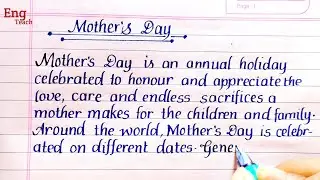 Eng
Teach
Page:
Mother's Day
Mother's Day is an annual holiday
celebrated to honour and appreciate the
love, care and endless sacrifices a
mother makes for the children and family.
Around the world, Mother's Day is celebr-
ated on different dates. Gene